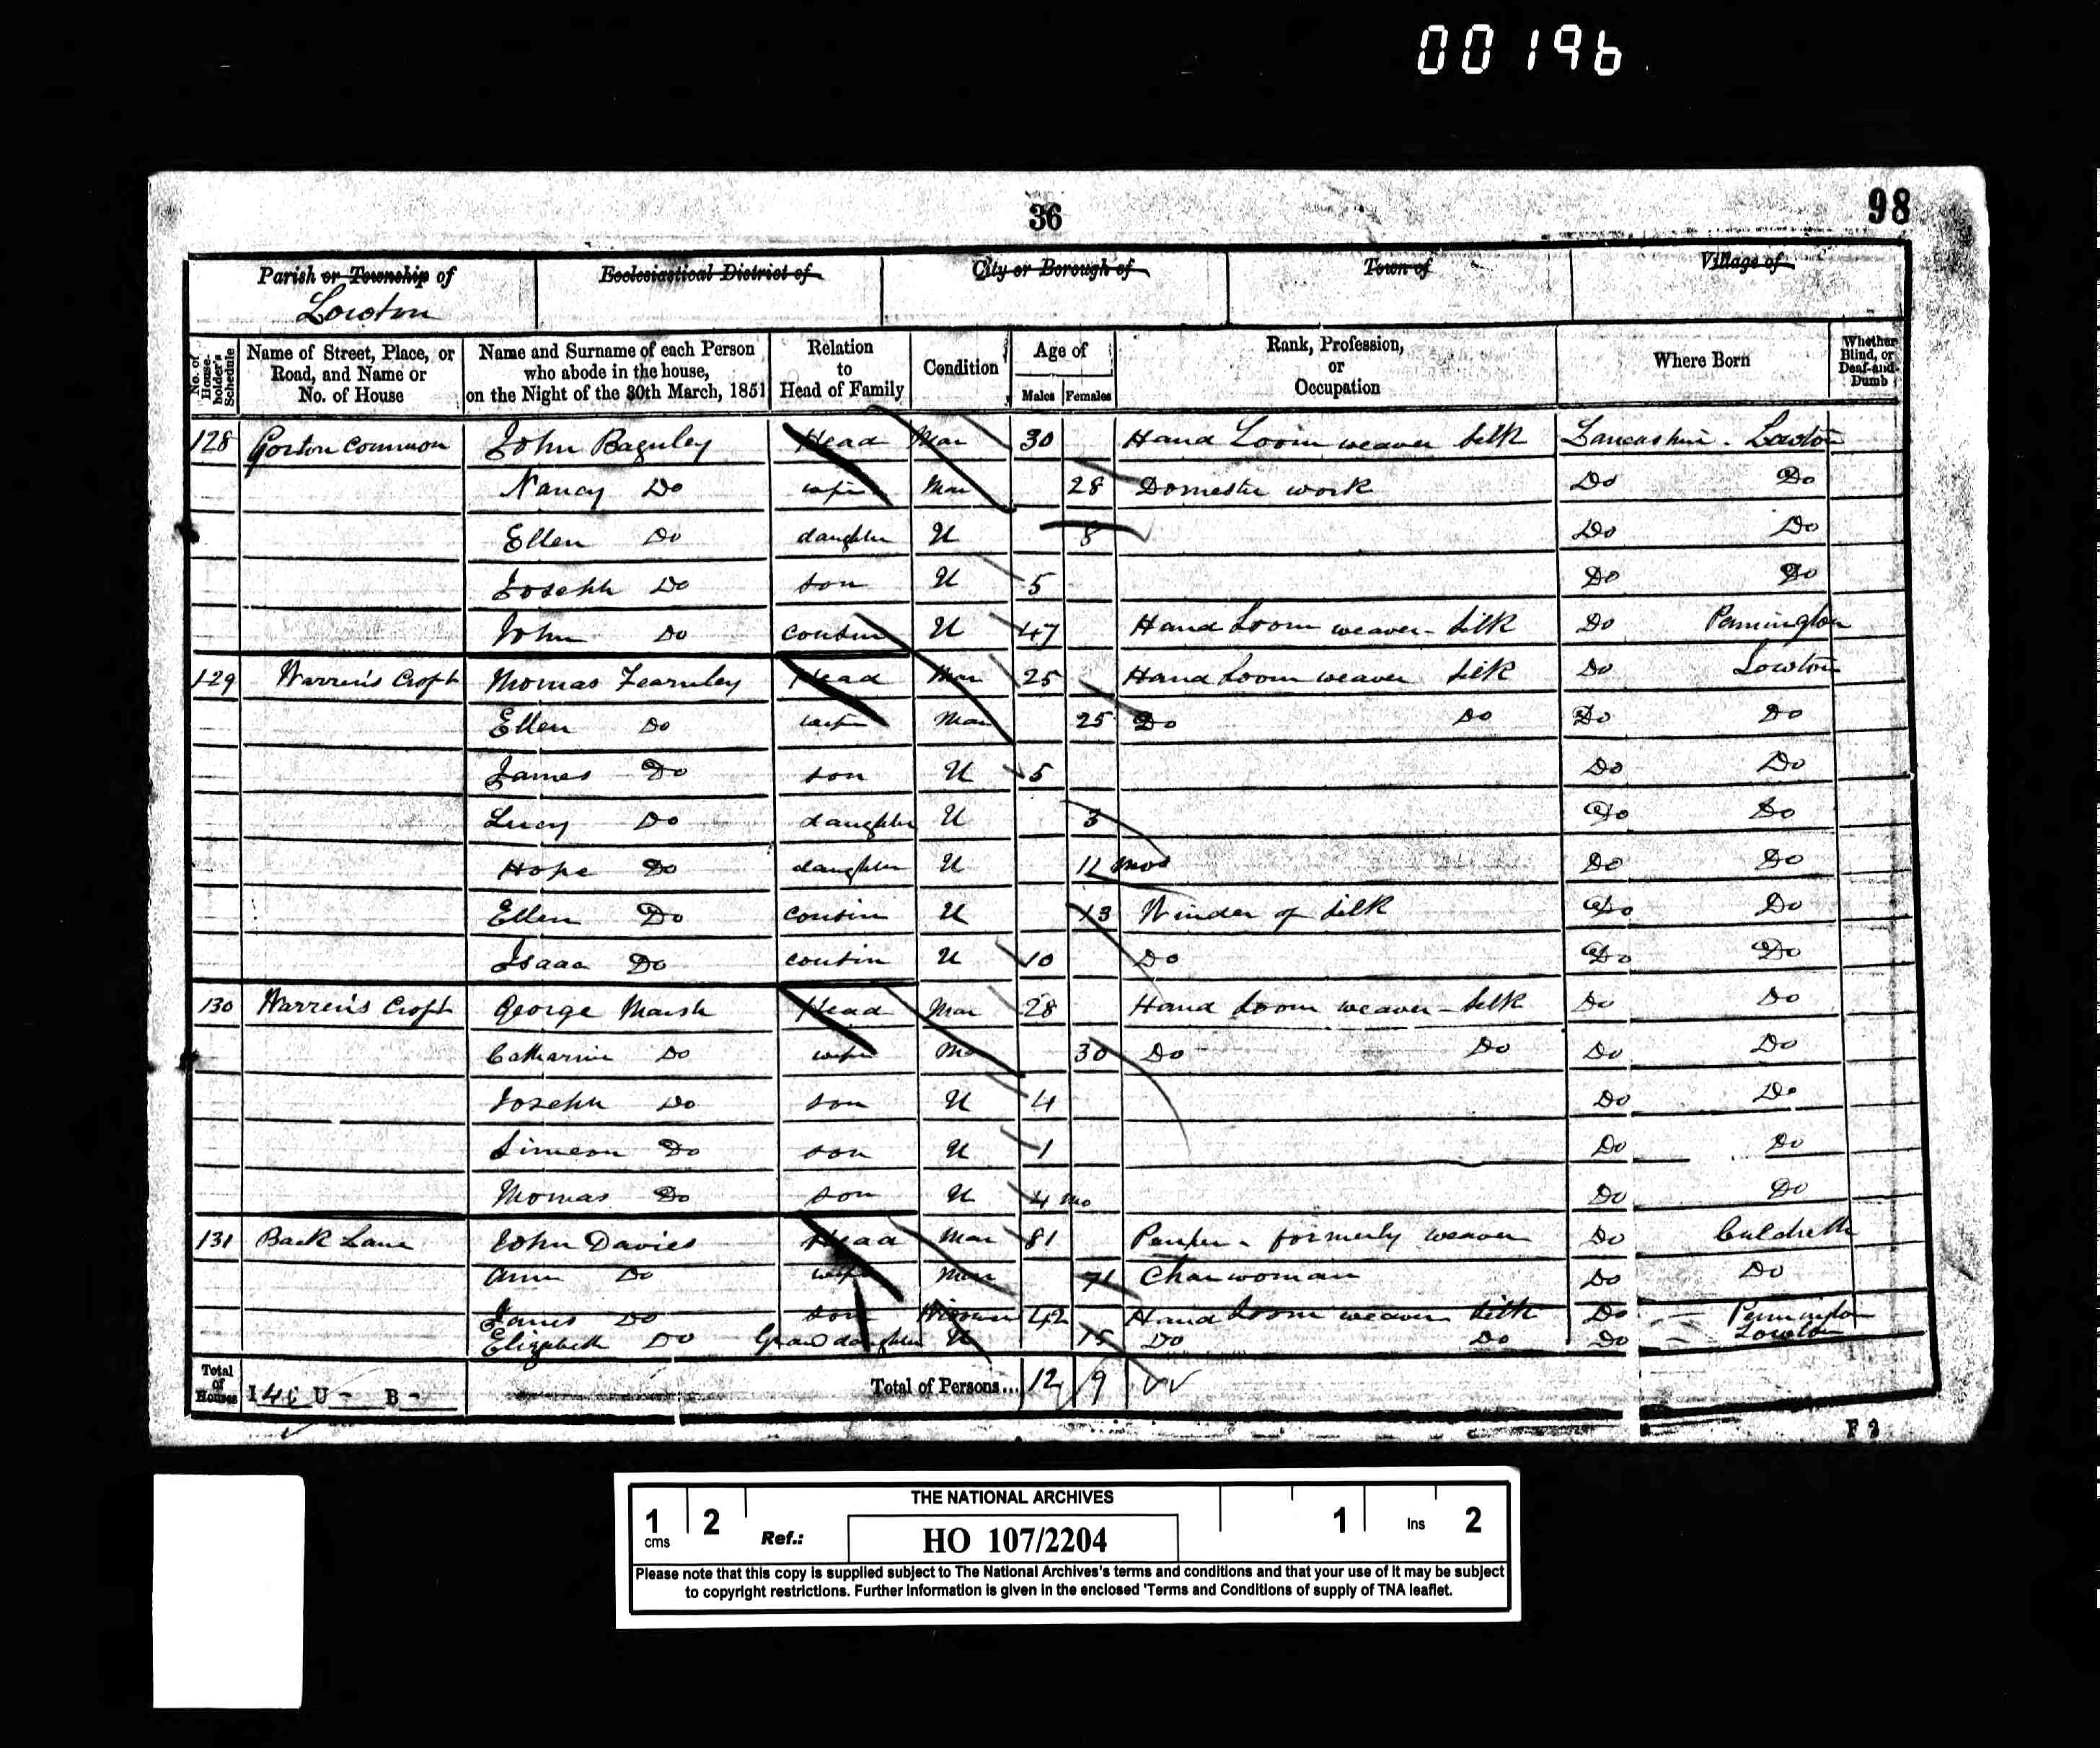 00196
36
98
Parish or Township of
Lowton
Ecclesiastical District of
City or Borough of
Town of
Village of
No. of House-holder's Schedule
Name of Street, Place, or Road, and Name or No. of House
Name and Surname of each Person who abode in the house, on the Night of the 30th March, 1851
Relation to Head of Family
Condition
Age of
Males Females
Rank, Profession, or Occupation
Where Born
Whether Blind, or Deaf-and-Dumb
128 Gorton Common John Baguley Head Mar 30 Hand Loom weaver Silk Lancashire - Lowton
Nancy Do wife Mar 28 Domestic work Do Do
Ellen Do daughter U 8 Do Do
Joseph Do son U 5 Do Do
John Do cousin U 47 Hand Loom weaver - Silk Do Pennington
129 Warren's Croft Thomas Fearnley Head Mar 25 Hand Loom weaver Silk Do Lowton
Ellen Do wife Mar 25 Do Do Do Do
James Do son U 5 Do Do
Lucy Do daughter U 3 Do Do
Hope Do daughter U 11 mos Do Do
Ellen Do cousin U 13 Winder of Silk Do Do
Isaac Do cousin U 10 Do Do Do
130 Warren's Croft George Marsh Head Mar 28 Hand Loom weaver - Silk Do Do
Catharine Do wife M 30 Do Do Do Do
Joseph Do son U 4 Do Do
Simeon Do son U 1 Do Do
Thomas Do son U 4 mo Do Do
131 Back Lane John Davies Head Mar 81 Pauper - formerly weaver Do Culcheth
Ann Do wife Mar 71 Charwoman Do Do
James Do son Widower 42 Hand Loom weaver Silk Do - Pennington
Elizabeth Do Grand daughter U 15 Do Do Do - Lowton
Total of Houses I 4 U - B -
Total of Persons... 12 9
F 2
THE NATIONAL ARCHIVES
1 cms 2 Ref.: HO 107/2204 1 Ins 2
Please note that this copy is supplied subject to The National Archives's terms and conditions and that your use of it may be subject
to copyright restrictions. Further information is given in the enclosed 'Terms and Conditions of supply of TNA leaflet.